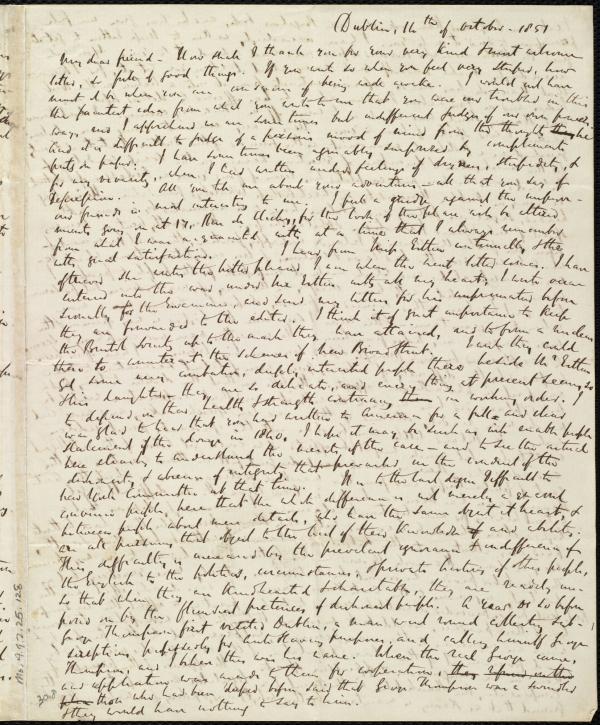 Dublin, 14th of October - 1851
My dear friend - How shall I thank you for your very kind & most welcome
letter, so full of good things. If you write so when you feel very stupid, how
must it be when you are conscious of being wide awake. I would not have
the faintest idea from what you write to me that you were ever troubled in this
way, and I apprehend we are sometimes but indifferent judges of our own powers,
and it is difficult to judge of a person's mood of mind from the thoughts he
puts on paper. I have sometimes been agreeably surprised by compliments
for my vivacity, when I had written under feelings of dryness, stupidity, &
depression. All you tell me about your adventures - all that you say of
our friends is most interesting to me. I feel a grudge against the improve-
ments going on at 17, Rue de Clichy, for the look of the place will be altered
from what I was acquainted with at a time that I always remember
with great satisfaction. I hear from Miss Estlin continually & the
oftener she writes the better pleased I am when the next letter comes. I have
entered into this war, under the Estlins with all my heart; I write occa-
sionally for the and send my letters for his before
they are forwarded to the editor. I think it of great importance to keep
the Bristol Society up to the mark they have attained, and to form a nucleus
there to counteract the schemes of New Broad Street. I wish they could
get some new, combative, , people there beside Mr. Estlin &
his daughter - they are so delicate, and everything at present seems so
to depend on their health & strength continuing in working order. I
was glad to hear that you have written to America for a full and clear
statement of the doings in 1840. I hope it may be such as will enable people
here clearly to understand the merits of the case - and to see the
dishonesty & absence of integrity that prevailed in the conduct of the
New York Committee at that time. It is to the last degree difficult to
convince people here that the whole difference is not merely a quarrel
between people about mere details, who have the same object at heart, &
are all pushing that object to the best of their knowledge and ability.
This difficulty is increased by the prevalent ignorance & indifference of
the English to the politics, circumstances, & private history of other people,
so that when they are kindhearted & charitable, they are easily im-
posed on by the pretences of dishonest people. A year or so before
George Thompson first visited Dublin, a man went round collecting sub-
scriptions professedly for Anti-Slavery purposes, and calling himself George
Thompson, and I believe this was his name. When the real George came,
and application was made to them for cooperation,
those who had been duped before said that George Thompson was a swindler
& they would have nothing to say to him.
Ms. A.9.2.25.128